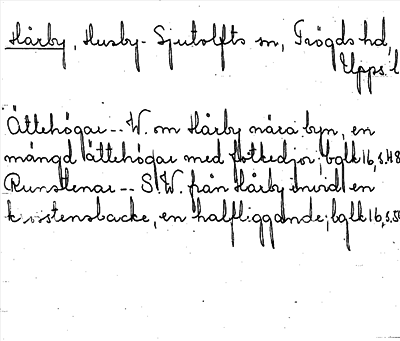 Hårby, Husby-Sjutolfts sn, Trögds hd,
Upps. l
Ättehögar -- W. om Hårby nära byn, en
mängd ättehögar med fotkedjor; bglk 16, s. 48
Runstenar -- S.W. från Hårby invid en
kvistensbacke, en halfliggande; bglk 16, s. 50